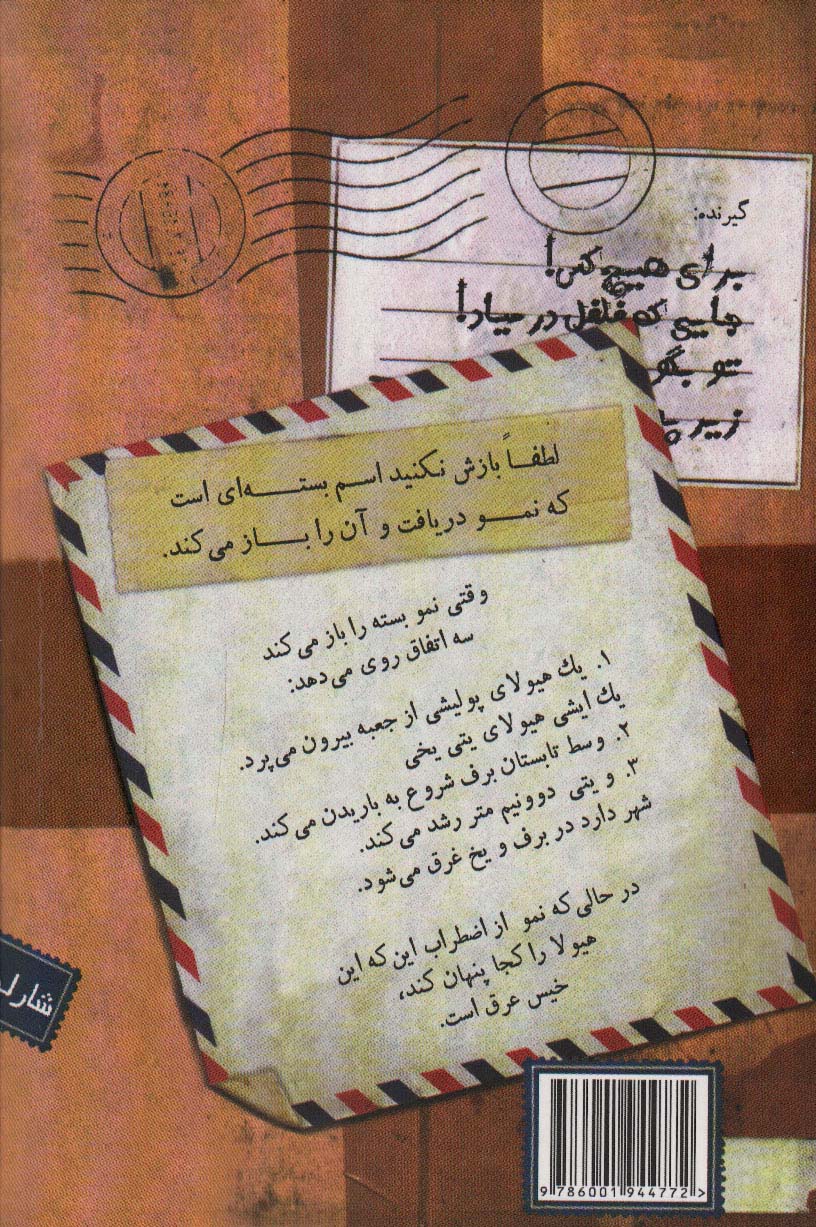 گیرنده:
برای هیچ کس!
جایی که فلفل در میاد!
تو بگو
زیر
لطفاً بازش نکنید اسم بسته‌ای است
که نمو دریافت و آن را باز می‌کند.
وقتی نمو بسته را باز می‌کند
سه اتفاق روی می‌دهد:
۱. یك هیولای پولیشی از جعبه بیرون می‌پرد.
یك ایشی هیولای یتی یخی
۲. وسط تابستان برف شروع به باریدن می‌کند.
۳. و یتی دوونیم متر رشد می‌کند.
شهر دارد در برف و یخ غرق می‌شود.
در حالی که نمو از اضطراب این که این
هیولا را کجا پنهان کند،
خیس عرق است.
شارل
9 786001 944772 >